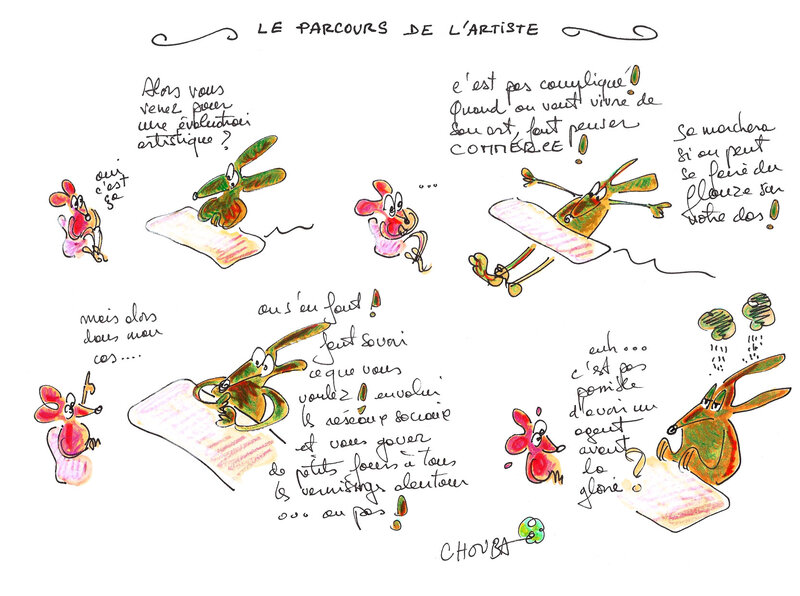 LE PARCOURS DE L'ARTISTE
Alors vous
venez pour
une évolution
artistique ?
oui
c'est
ça
c'est pas compliqué !
Quand on veut vivre de
son art, faut penser
COMMERCE !
...
Sa marchera
si on peut
se faire du
flouze sur
votre dos !
mais alors
dans mon
cas....
on s'en fout !
faut savoir
ce que vous
voulez ! envahir
les réseaux sociaux
et vous gaver
de petits fours à tous
les vernissages alentour
... ou pas !
euh...
c'est pas
possible
d'avoir un
agent
avant
la
gloire ?
CHOUBA